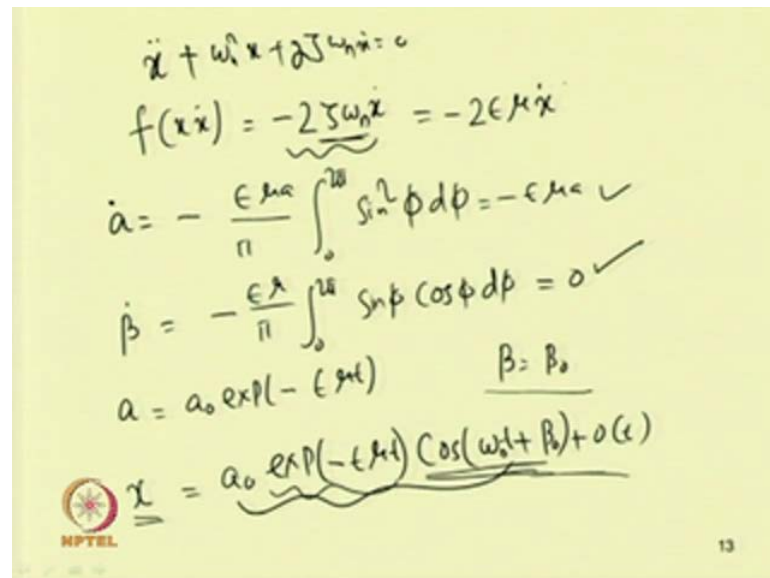 ẍ + ωₙ²x + 2ζωₙẋ = 0
f(xẋ) = -2ζωₙẋ = -2εμẋ
ȧ = - εμa/π ∫₀^2π sin²φ dφ = -εμa ✓
β̇ = - εμ/π ∫₀^2π sinφ cosφ dφ = 0 ✓
a = a₀ exp(-εμt) β = β₀
x = a₀ exp(-εμt) Cos(ω₀t + β₀) + 0(ε)
NPTEL
13